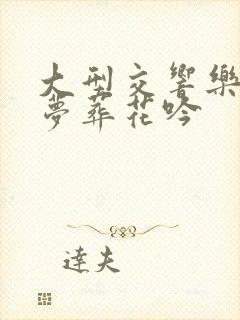 大型交響樂
夢葬花吟
達夫